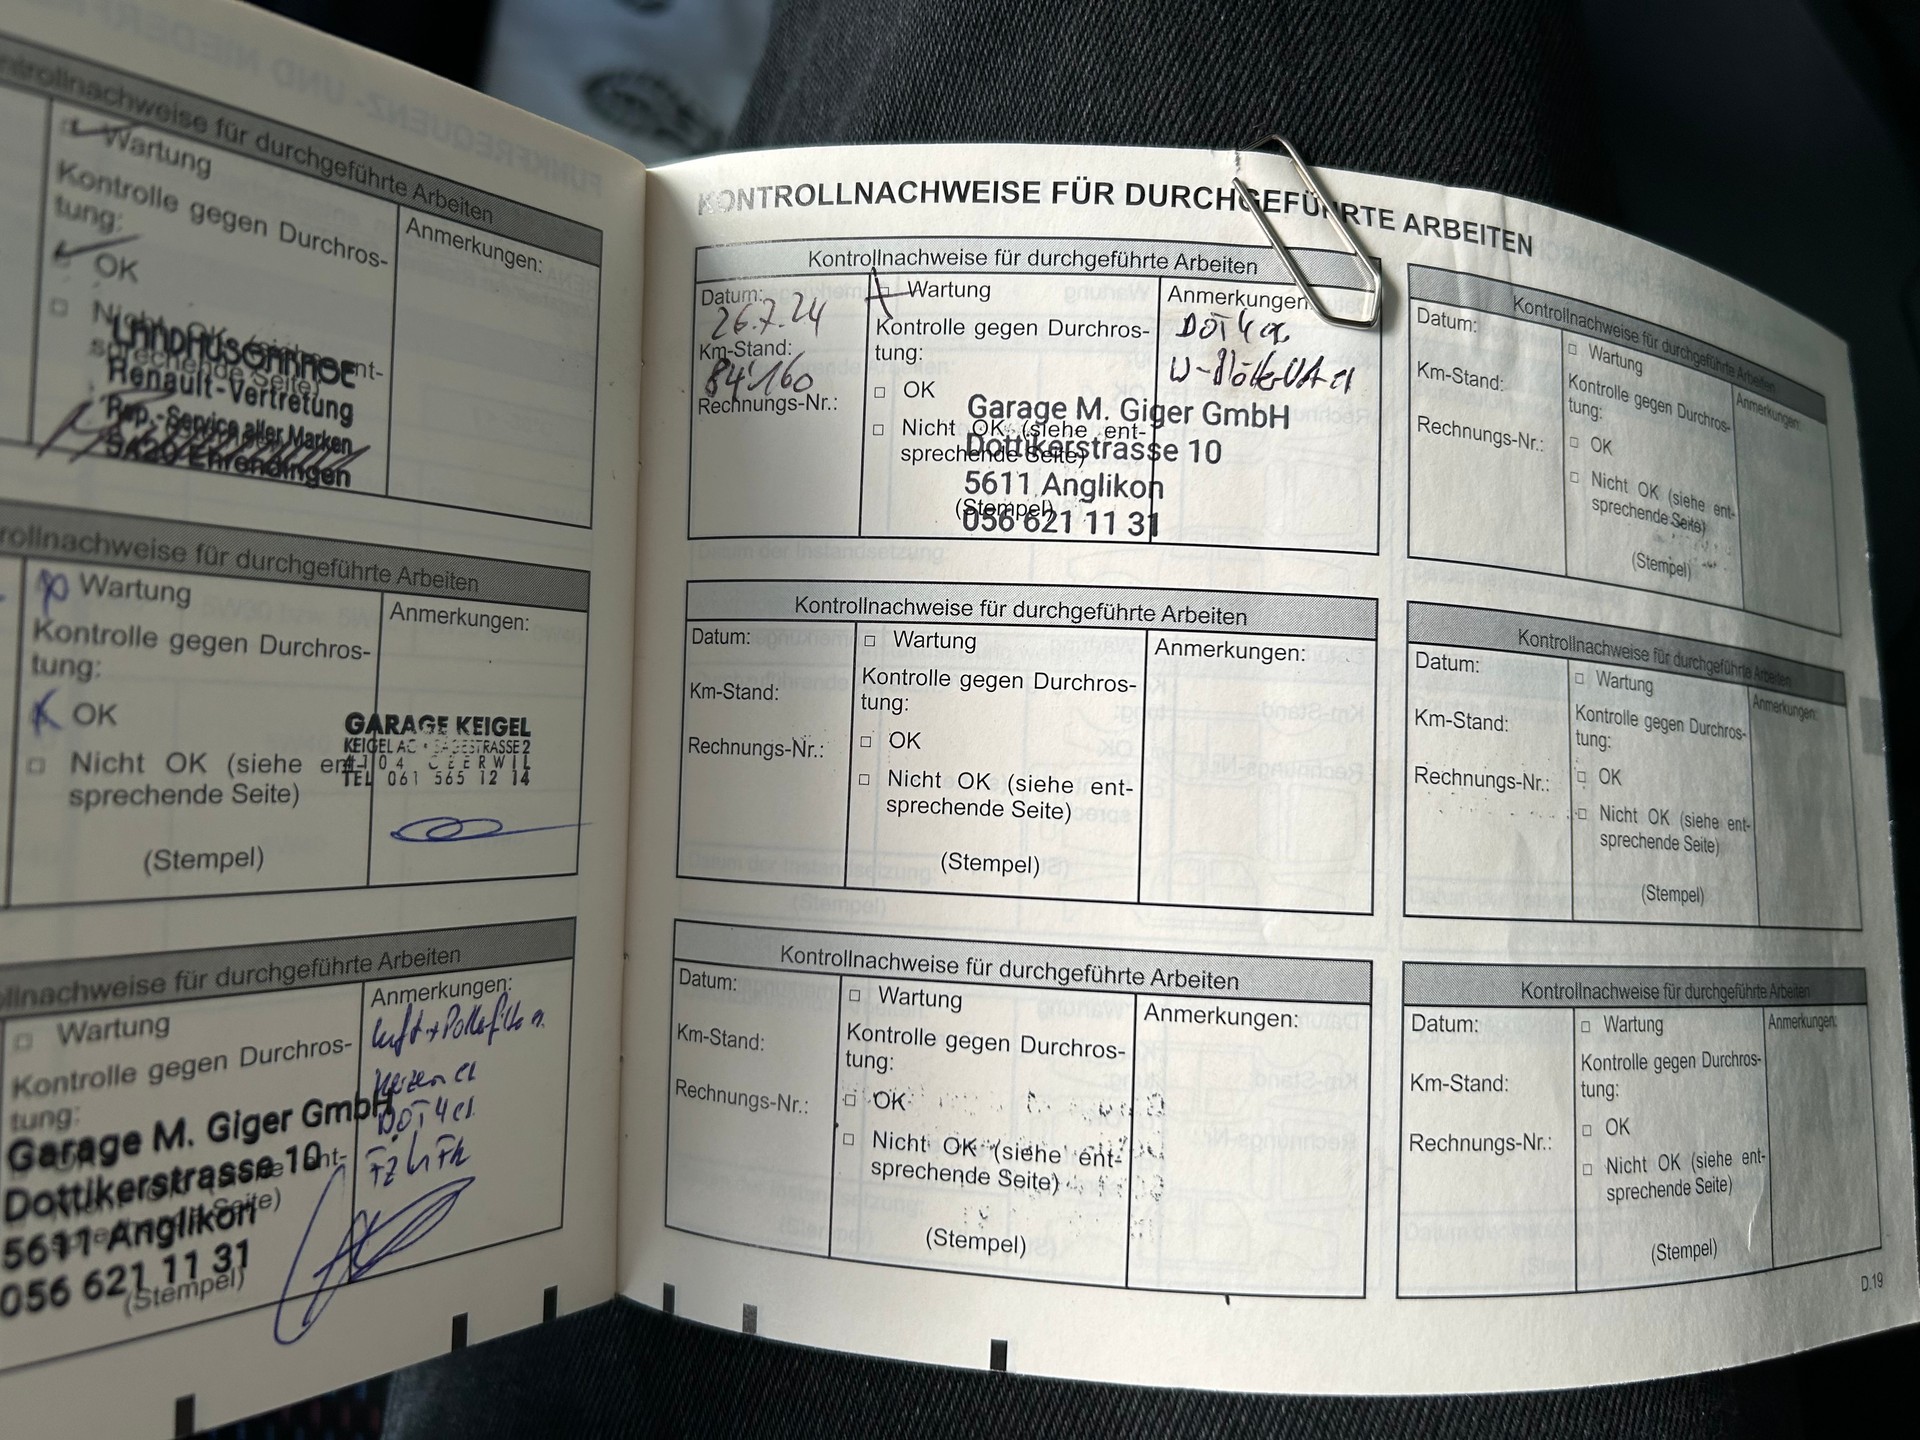 Kontrollnachweise für durchgeführte Arbeiten
Wartung
Kontrolle gegen Durchros-
tung:
OK
Nicht OK
sprechende Seite)
Anmerkungen:
LANDHUSGARAGE
Renault-Vertretung
Rep.-Service aller Marken
Ehrendingen
rollnachweise für durchgeführte Arbeiten
Wartung
Kontrolle gegen Durchros-
tung:
OK
Nicht OK (siehe ent-
sprechende Seite)
(Stempel)
Anmerkungen:
GARAGE KEIGEL
KEIGEL AG
TEL 061 565 12 14
llnachweise für durchgeführte Arbeiten
Wartung
Kontrolle gegen Durchros-
tung:
Anmerkungen:
DOT4
Garage M. Giger GmbH
Dottikerstrasse 10
5611 Anglikon
056 621 11 31
(Stempel)
KONTROLLNACHWEISE FÜR DURCHGEFÜHRTE ARBEITEN
Kontrollnachweise für durchgeführte Arbeiten
Datum:
26.7.24
Km-Stand:
84'160
Rechnungs-Nr.:
Wartung
Kontrolle gegen Durchros-
tung:
OK
Nicht OK (siehe ent-
sprechende Seite)
(Stempel)
Anmerkungen
DOT4
Garage M. Giger GmbH
Dottikerstrasse 10
5611 Anglikon
056 621 11 31
Kontrollnachweise für durchgeführte Arbeiten
Datum:
Km-Stand:
Rechnungs-Nr.:
Wartung
Kontrolle gegen Durchros-
tung:
OK
Nicht OK (siehe ent-
sprechende Seite)
(Stempel)
Anmerkungen:
Kontrollnachweise für durchgeführte Arbeiten
Datum:
Km-Stand:
Rechnungs-Nr.:
Wartung
Kontrolle gegen Durchros-
tung:
OK
Nicht OK (siehe ent-
sprechende Seite)
(Stempel)
Anmerkungen:
Kontrollnachweise für durchgeführte Arbeiten
Datum:
Km-Stand:
Rechnungs-Nr.:
Wartung
Kontrolle gegen Durchros-
tung:
OK
Nicht OK (siehe ent-
sprechende Seite)
(Stempel)
Anmerkungen:
Kontrollnachweise für durchgeführte Arbeiten
Datum:
Km-Stand:
Rechnungs-Nr.:
Wartung
Kontrolle gegen Durchros-
tung:
OK
Nicht OK (siehe ent-
sprechende Seite)
(Stempel)
Anmerkungen:
Kontrollnachweise für durchgeführte Arbeiten
Datum:
Km-Stand:
Rechnungs-Nr.:
Wartung
Kontrolle gegen Durchros-
tung:
OK
Nicht OK (siehe ent-
sprechende Seite)
(Stempel)
Anmerkungen:
D.19